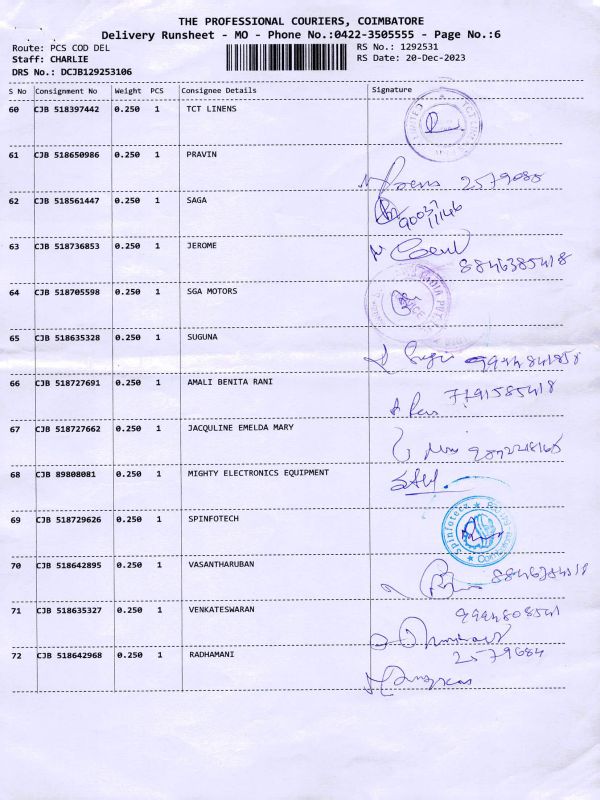 THE PROFESSIONAL COURIERS, COIMBATORE
Delivery Runsheet - MO - Phone No.:0422-3505555 - Page No.:6
Route: PCS COD DEL RS No.: 1292531
Staff: CHARLIE RS Date: 20-Dec-2023
DRS No.: DCJB129253106
S No Consignment No Weight PCS Consignee Details Signature
60 CJB 518397442 0.250 1 TCT LINENS
61 CJB 518650986 0.250 1 PRAVIN
2579088
62 CJB 518561447 0.250 1 SAGA
90037
11146
63 CJB 518736853 0.250 1 JEROME
8846385418
64 CJB 518705598 0.250 1 SGA MOTORS
65 CJB 518635328 0.250 1 SUGUNA
9944841858
66 CJB 518727691 0.250 1 AMALI BENITA RANI
7791585418
67 CJB 518727662 0.250 1 JACQULINE EMELDA MARY
68 CJB 89808081 0.250 1 MIGHTY ELECTRONICS EQUIPMENT
69 CJB 518729626 0.250 1 SPINFOTECH
Spinfotech
70 CJB 518642895 0.250 1 VASANTHARUBAN
71 CJB 518635327 0.250 1 VENKATESWARAN
9994808541
72 CJB 518642968 0.250 1 RADHAMANI
2579684